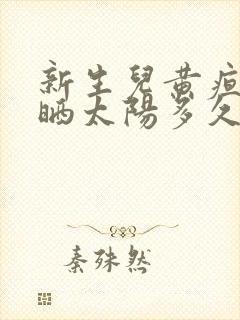 新生兒黄疸
晒太陽多久
秦殊然